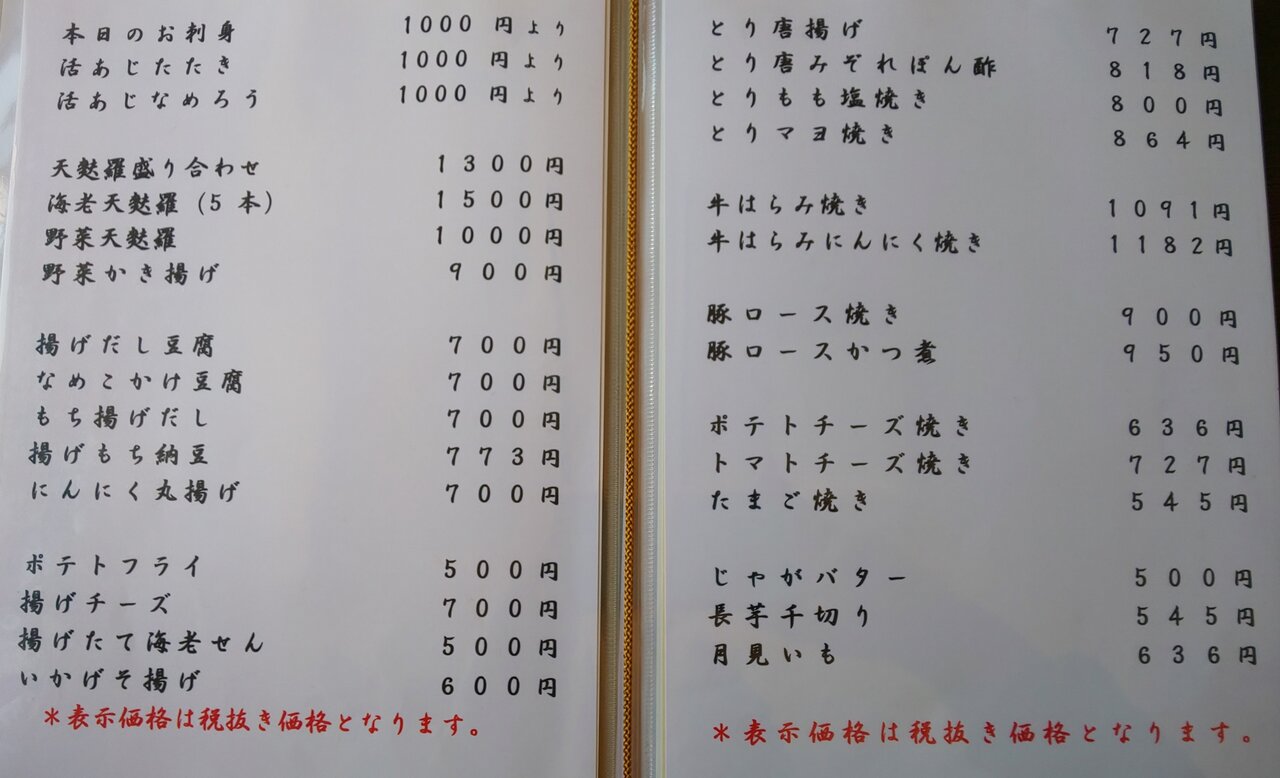 本日のお刺身 1000円より
活あじたたき 1000円より
活あじなめろう 1000円より
天麩羅盛り合わせ 1300円
海老天麩羅(5本) 1500円
野菜天麩羅 1000円
野菜かき揚げ 900円
揚げだし豆腐 700円
なめこかけ豆腐 700円
もち揚げだし 700円
揚げもち納豆 773円
にんにく丸揚げ 700円
ポテトフライ 500円
揚げチーズ 700円
揚げたて海老せん 500円
いかげそ揚げ 600円
*表示価格は税抜き価格となります。
とり唐揚げ 727円
とり唐みぞれぽん酢 818円
とりもも塩焼き 800円
とりマヨ焼き 864円
牛はらみ焼き 1091円
牛はらみにんにく焼き 1182円
豚ロース焼き 900円
豚ロースかつ煮 950円
ポテトチーズ焼き 636円
トマトチーズ焼き 727円
たまご焼き 545円
じゃがバター 500円
長芋千切り 545円
月見いも 636円
*表示価格は税抜き価格となります。